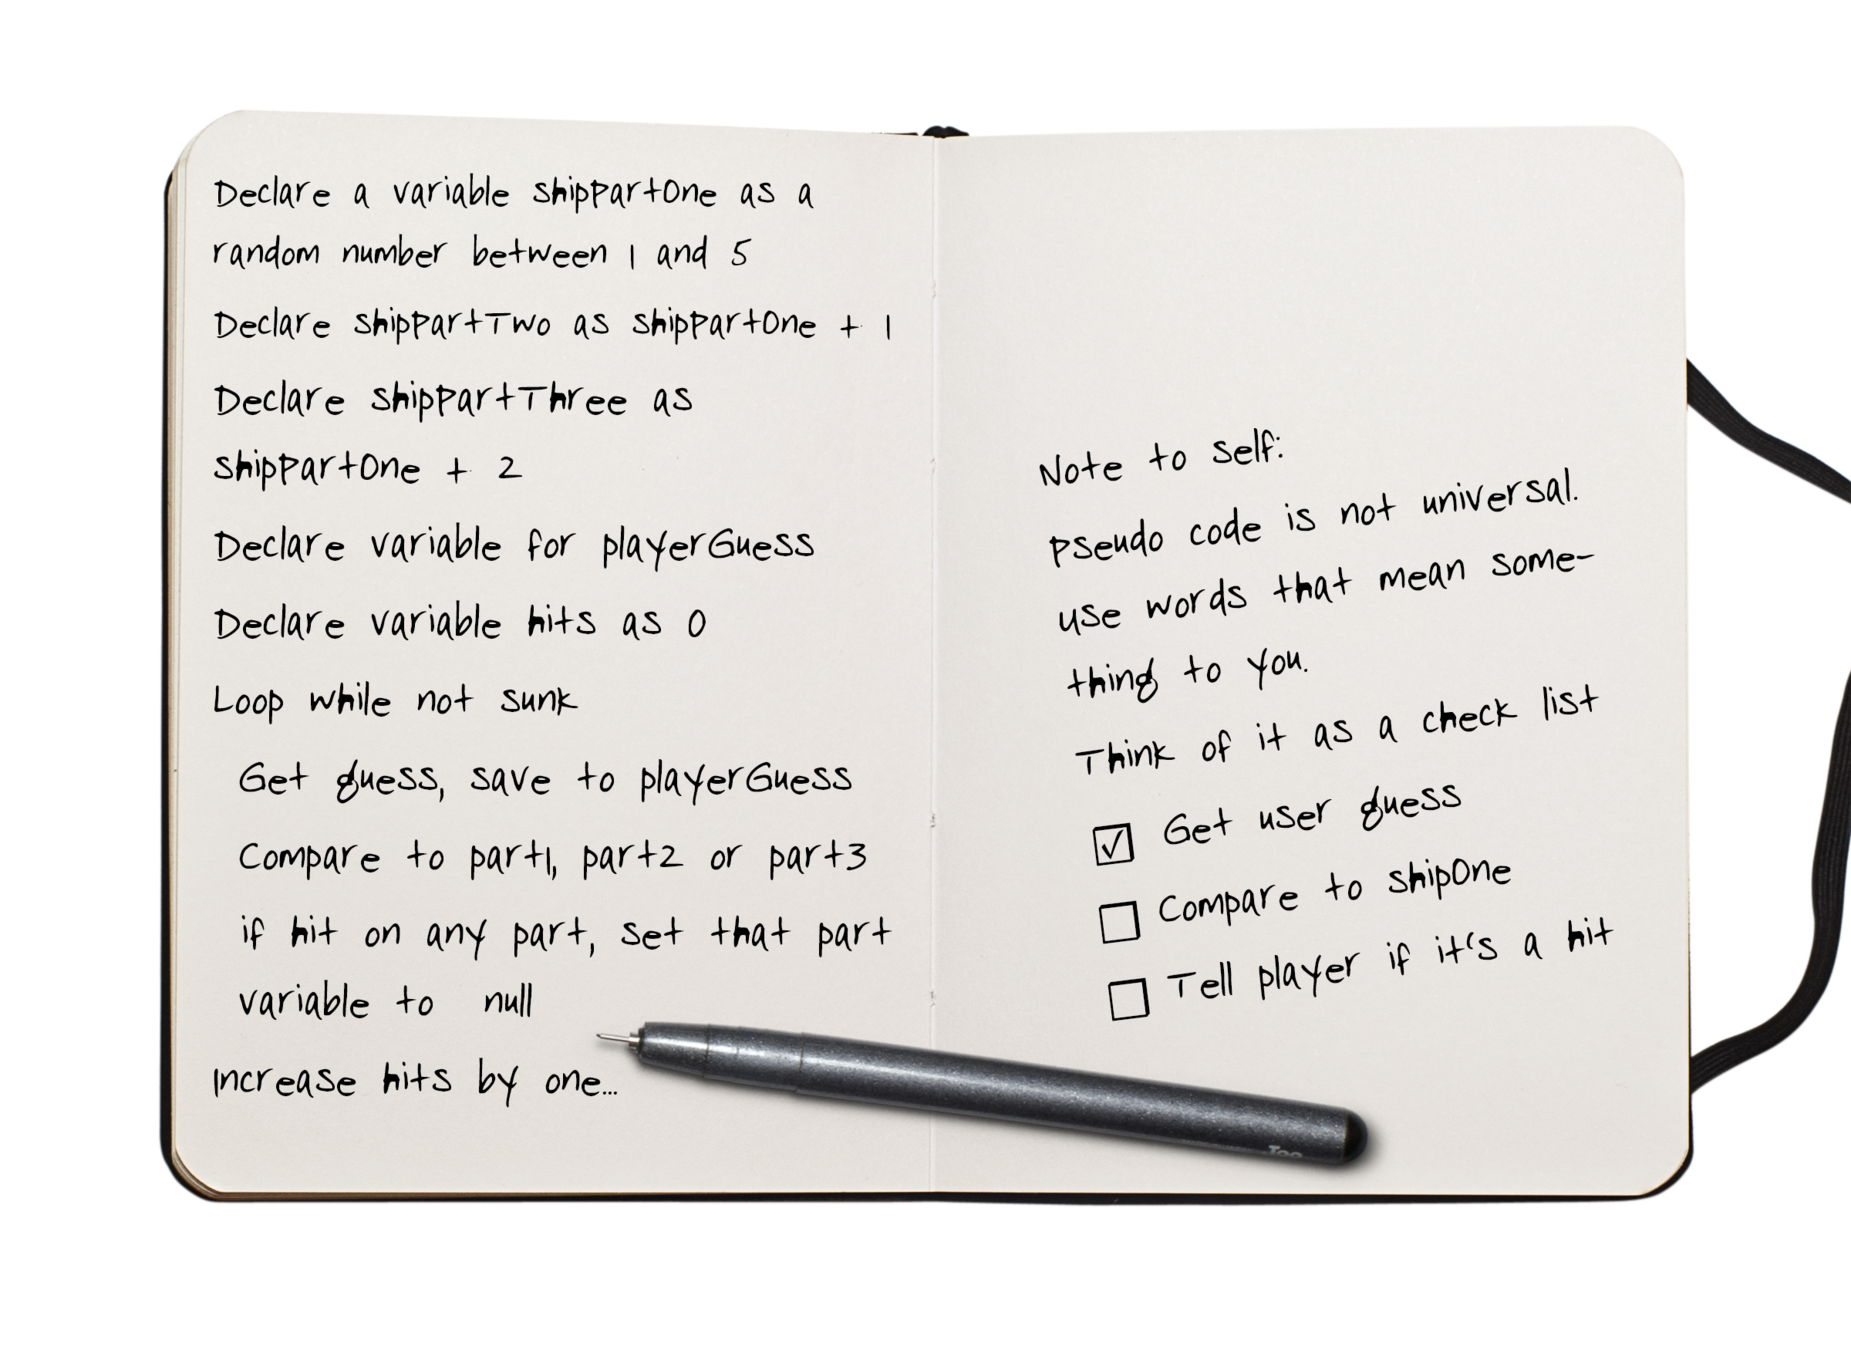 Declare a variable shipPartOne as a
random number between 1 and 5
Declare shipPartTwo as shipPartOne + 1
Declare shipPartThree as
shipPartOne + 2
Declare variable for playerGuess
Declare variable hits as 0
Loop while not sunk
Get guess, save to playerGuess
Compare to part1, part2 or part3
if hit on any part, set that part
variable to null
Increase hits by one...
Note to self:
Pseudo code is not universal.
use words that mean some-
thing to you.
Think of it as a check list
Get user guess
Compare to shipOne
Tell player if it's a hit